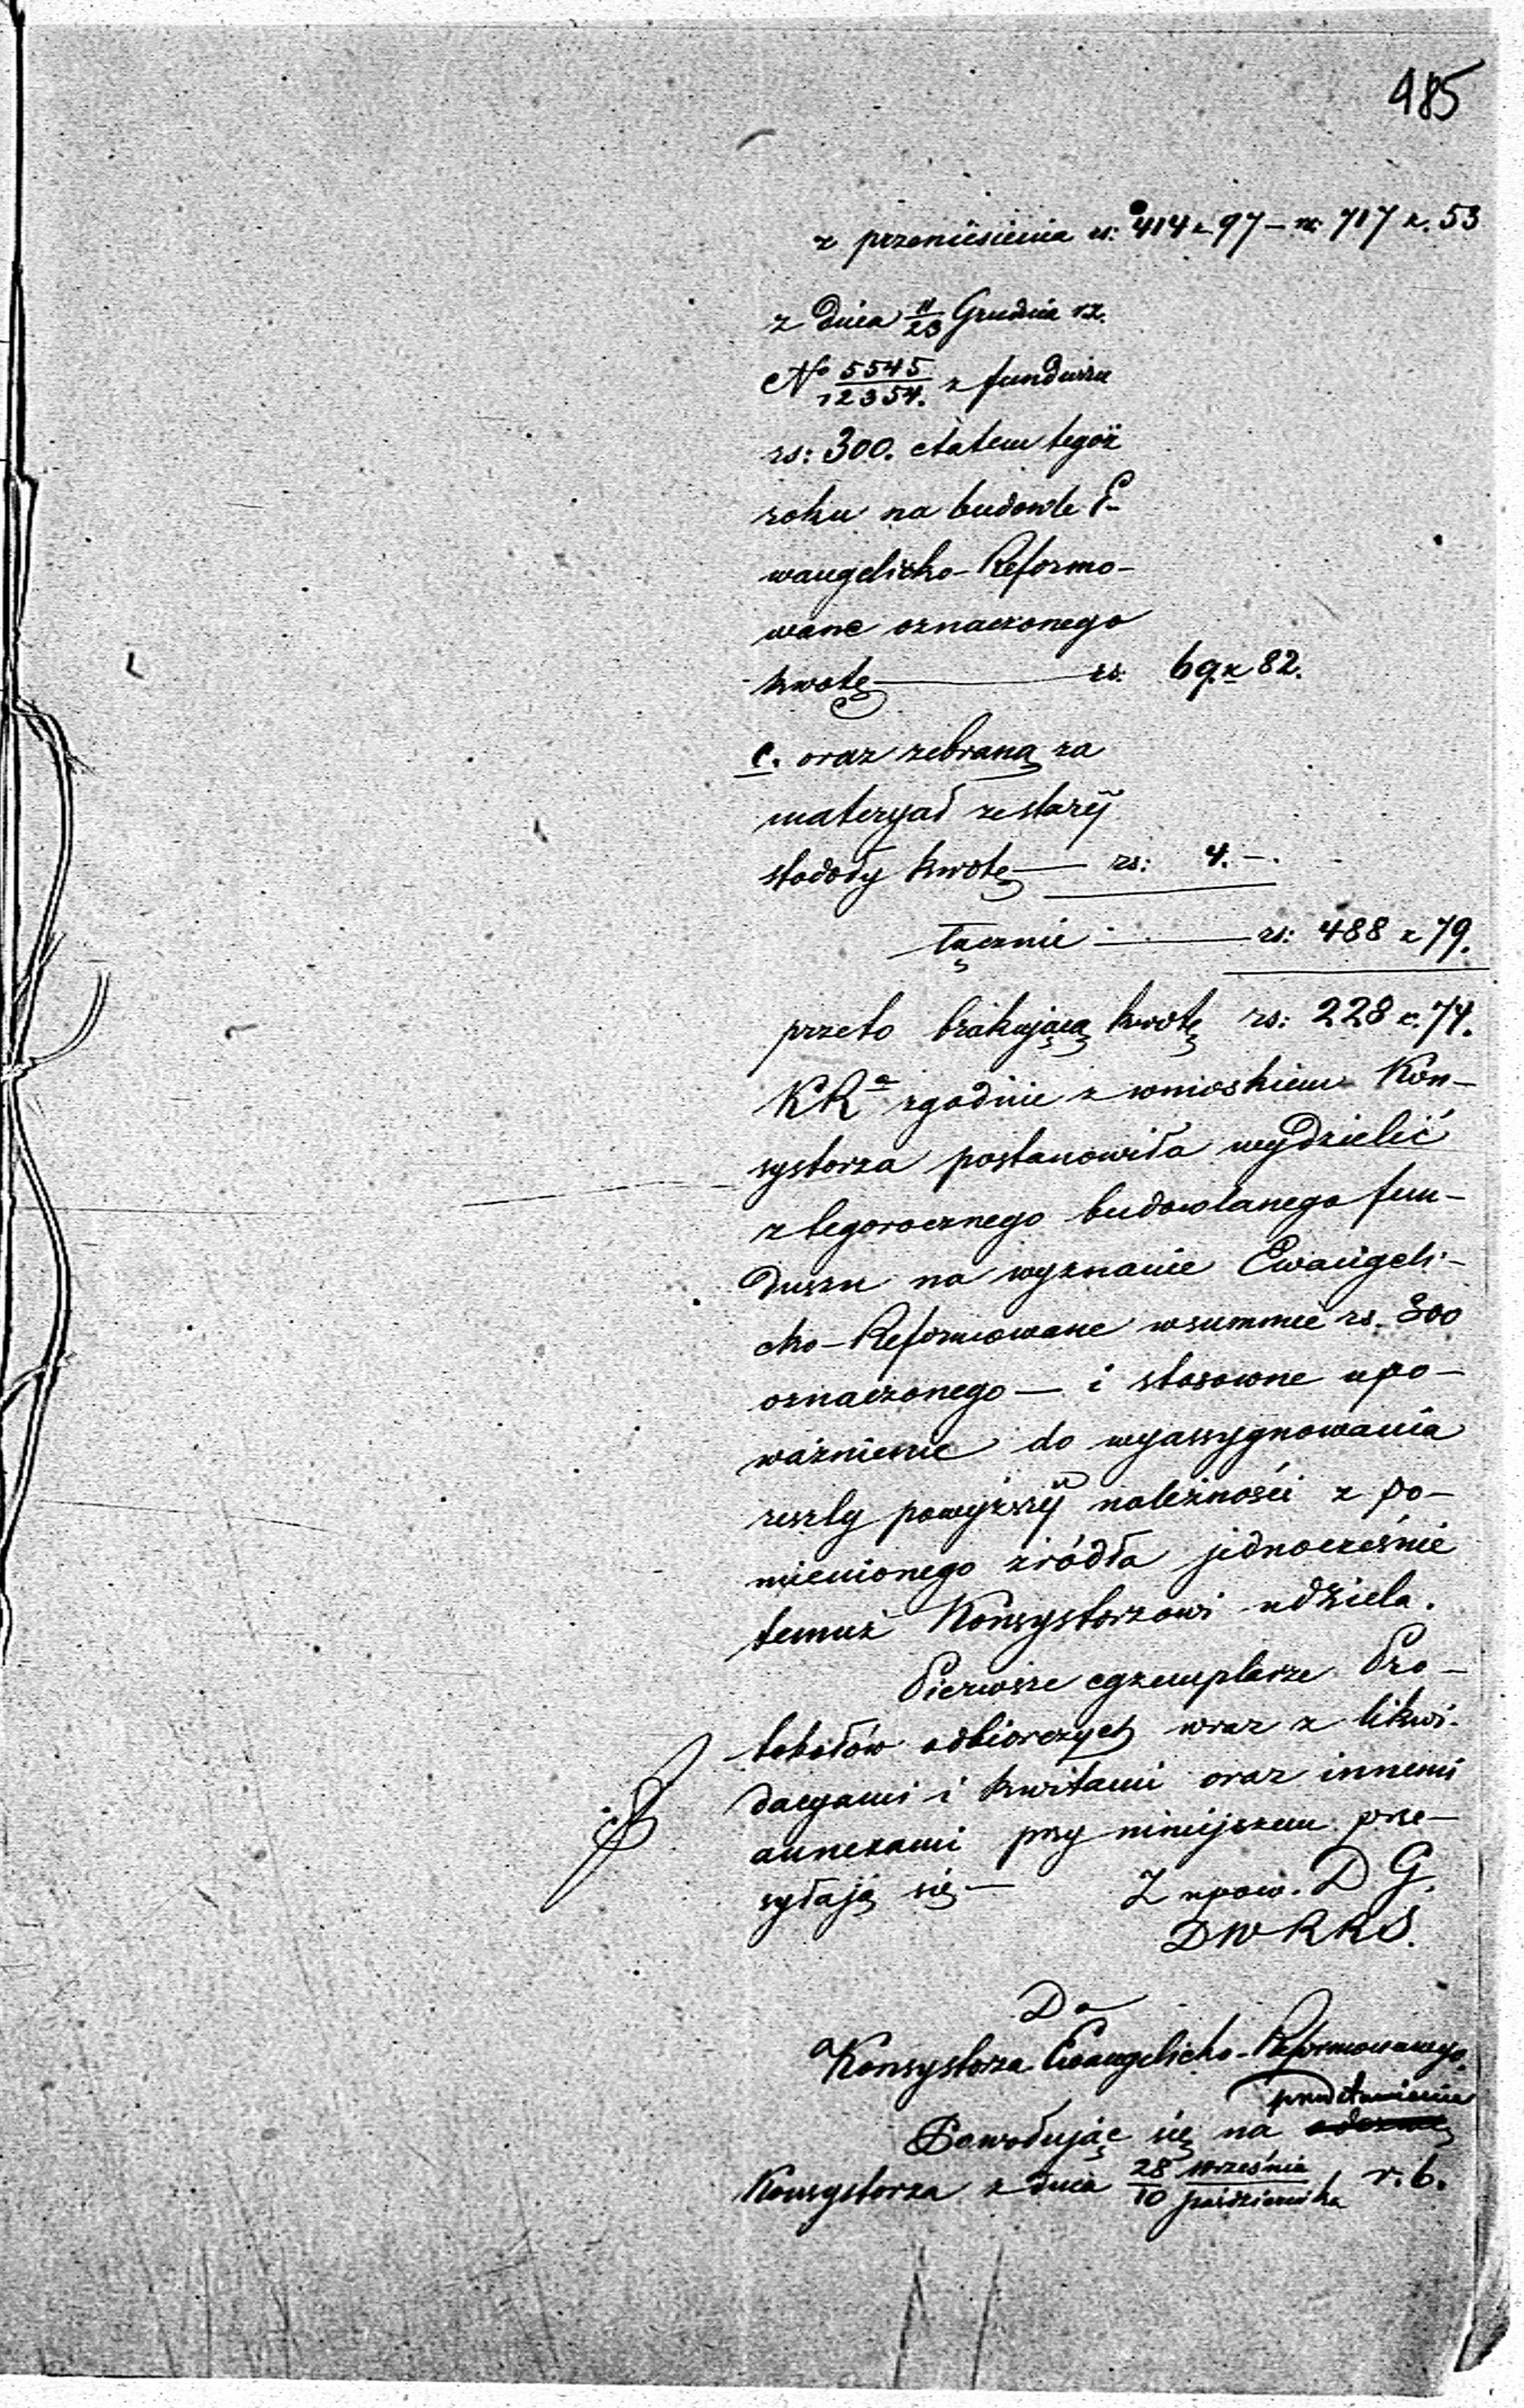 485
z przeniesienia rs: 414 k 97 – rs: 717 k. 53
z dnia 11/23 Grudnia rz.
No 5545/12354. z funduszu
rs: 300. etatem tegoż
roku na budowle E-
wangelicko-Reformo-
wane oznaczonego
kwotę — rs: 69 k 82.
c. oraz zebraną za
materyał ze staréj
stodoły kwotę — rs: 4. –.
łącznie — rs: 488 k 79.
przeto brakującą kwotę rs: 228 k. 74.
KRa zgodnie z wnioskiem Kon-
systorza postanowiła wydzielić
z tegorocznego budowlanego fun-
duszu na wyznanie Ewangeli-
cko-Reformowane w summie rs. 300
oznaczonego — i stosowne upo-
ważnienie do wyassygnowania
reszty powyższéj należności z po-
mienionego źródła jednocześnie
temuż Konsystorzowi udziela.
Pierwsze egzemplarze Pro-
tokołów odbiorczych wraz z likwi-
dacyami i kwitami oraz innemi
annexami przy niniejszem prze-
syłają się —
Z upow. D G.
DWRKS.
Do
Konsystorza Ewangelicko-Reformowanego.
przedstawienie
Powołując się na
Konsystorza z dnia 28 września/10 października r. b.